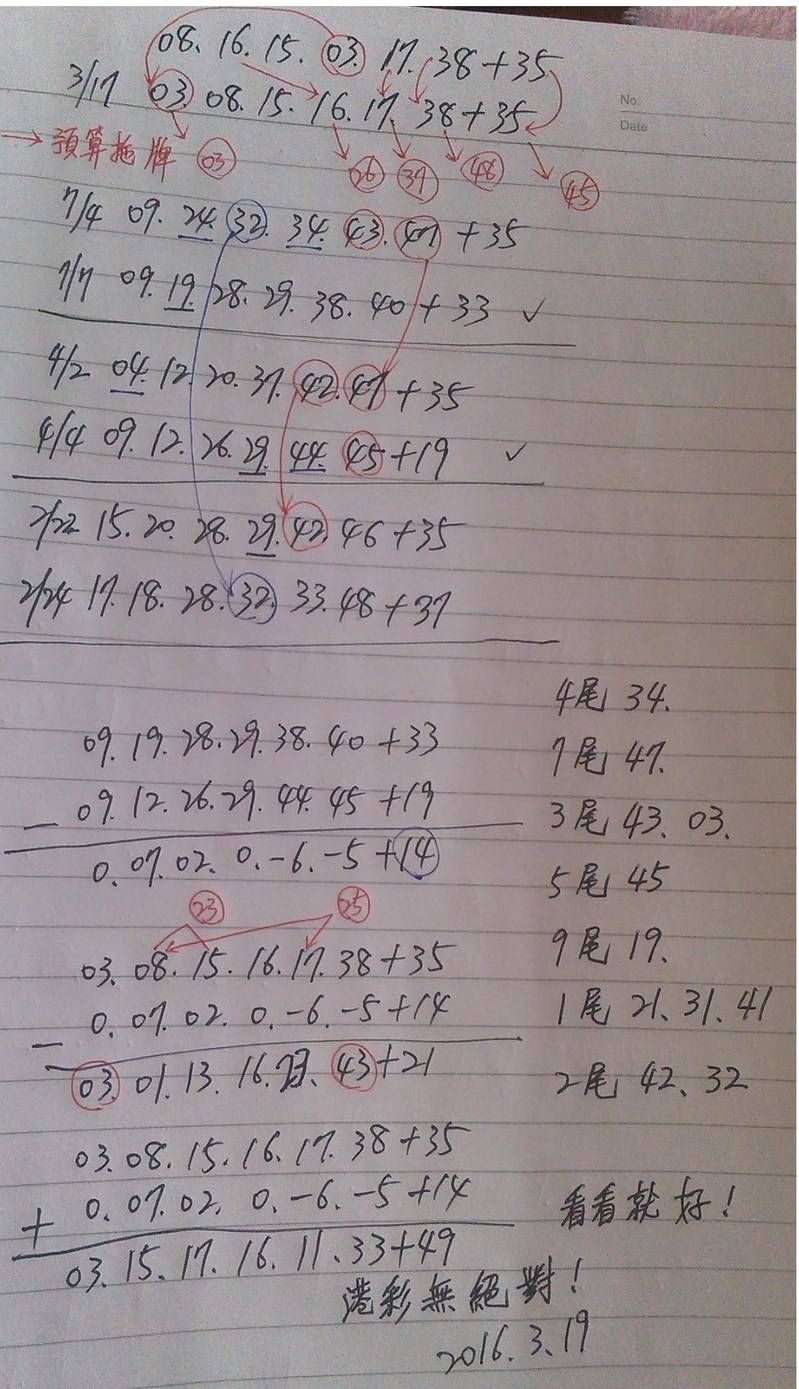 08. 16. 15. 03. 17. 38+35
3/17 03. 08. 15. 16. 17. 38+35
No.
Date
→ 預算拖牌 03 26 37 48 45
7/4 09. 24. 32. 34. 43. 47 +35
7/7 09. 19. 28. 29. 38. 40 +33 ✓
4/2 04. 12. 20. 37. 42. 47 +35
4/4 09. 12. 26. 29. 44. 45 +19 ✓
2/22 15. 20. 28. 29. 42. 46 +35
2/24 17. 18. 28. 32. 33. 48 +37
4尾 34.
7尾 47.
3尾 43. 03.
5尾 45
9尾 19.
1尾 21、31、41
2尾 42、32
09. 19. 28. 29. 38. 40 +33
- 09. 12. 26. 29. 44. 45 +19
0. 07. 02. 0. -6. -5 +14
23 25
03. 08. 15. 16. 17. 38 +35
- 0. 07. 02. 0. -6. -5 +14
03. 01. 13. 16. 43 +21
03. 08. 15. 16. 17. 38 +35
+ 0. 07. 02. 0. -6. -5 +14
03. 15. 17. 16. 11. 33 +49
看看就好!
港彩無絕對!
2016.3.19